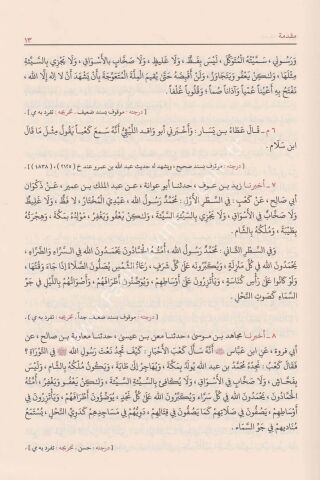 مقدمة
١٣
وَرَسُولِي، سَمَّيْتُهُ الْمُتَوَكِّلَ، لَيْسَ بِفَظٍّ، وَلَا غَلِيظٍ، وَلَا صَخَّابٍ بِالْأَسْوَاقِ، وَلَا يَجْزِي بِالسَّيِّئَةِ
مِثْلَهَا، وَلَكِنْ يَعْفُو وَيَتَجَاوَزُ، وَلَنْ أَقْبِضَهُ حَتَّى يُقِيمَ الْمِلَّةَ الْمُتَعَوِّجَةَ بِأَنْ يَشْهَدَ أَنْ لَا إِلَهَ إِلَّا اللَّه،
نَفْتَحُ بِهِ أَعْيُناً عُمْياً وَآذَاناً صُماً، وَقُلُوباً غُلْفاً.
[درجته: موقوف بسند ضعيف، تخريجه: تفرد به مي].
٦ م ـ قَالَ عَطَاءُ بن يَسَار: وَأَخْبَرَنِي أَبو وَاقِد اللَّيْثِيُّ أَنَّهُ سَمِعَ كَعْباً يَقُولُ مِثْلَ مَا قَالَ
ابن سَلَام.
[درجته: موقوف بسند صحيح، ويشهد له حديث عبد الله بن عمرو عند خ (٢١٢٥)، (٤٨٣٨)].
٧ ـ أخبرنا زيد بن عوف، حدثنا أبو عوانة، عن عبد الملك بن عمير، عَنْ ذَكْوَانَ
أبي صَالِح، عَنْ كَعْبٍ: فِي السَّطْرِ الْأَوَّلِ: مُحَمَّدٌ رَسُولُ اللَّهِ، عَبْدِي الْمُخْتَارُ، لَا فَظٌّ، وَلَا غَلِيظٌ
وَلَا صَخَّابٌ فِي الْأَسْوَاقِ، وَلَا يَجْزِي بِالسَّيِّئَةِ السَّيِّئَةَ، وَلَكِنْ يَعْفُو وَيَغْفِرُ، مَوْلِدُهُ بِمَكَّةَ، وَهِجْرَتُهُ
بِطَيْبَةَ، وَمُلْكُهُ بِالشَّامِ.
وَفِي السَّطْرِ الثَّانِي: مُحَمَّدٌ رَسُولُ اللَّهِ، أُمَّتُهُ الْحَمَّادُونَ يَحْمَدُونَ اللَّهَ فِي السَّرَّاءِ وَالضَّرَّاءِ،
يَحْمَدُونَ اللَّهَ فِي كُلِّ مَنْزِلَةٍ، وَيُكَبِّرُونَهُ عَلَى كُلِّ شَرَفٍ، رُعَاةُ الشَّمْسِ يُصَلُّونَ الصَّلَاةَ إِذَا جَاءَ وَقْتُهَا،
وَلَوْ كَانُوا عَلَى رَأْسِ كُنَاسَةٍ، وَيَأْتَزِرُونَ عَلَى أَوْسَاطِهِمْ، وَيُوَضِّئُونَ أَطْرَافَهُمْ، وَأَصْوَاتُهُمْ بِاللَّيْلِ فِي جَوِّ
السَّمَاءِ كَصَوْتِ النَّحْلِ.
[درجته: موقوف بسند ضعيف جداً، تخريجه: تفرد به مي].
٨ ـ أخبرنا مجاهد بن موسى، حدثنا معن بن عيسى، حدثنا معاوية بن صالح، عن
أبي فروة، عَنِ ابن عَبَّاسٍ أَنَّهُ سَأَلَ كَعْبَ الْأَحْبَارِ: كَيْفَ تَجِدُ نَعْتَ رَسُولِ اللَّهِ ﷺ فِي التَّوْرَاةِ؟
فَقَالَ كَعْبٌ: نَجِدُهُ مُحَمَّدَ بن عبد اللَّهِ يُولَدُ بِمَكَّةَ، وَيُهَاجِرُ إِلَى طَابَةَ، وَيَكُونُ مُلْكُهُ بِالشَّامِ، وَلَيْسَ
بِفَحَّاشٍ، وَلَا صَخَّابٍ فِي الْأَسْوَاقِ، وَلَا يُكَافِئُ بِالسَّيِّئَةِ السَّيِّئَةَ، وَلَكِنْ يَعْفُو وَيَغْفِرُ، أُمَّتُهُ
الْحَمَّادُونَ، يَحْمَدُونَ اللَّهَ فِي كُلِّ سَرَّاءَ، وَيُكَبِّرُونَ اللَّهَ عَلَى كُلِّ نَجْدٍ، يُوَضِّئُونَ أَطْرَافَهُمْ، وَيَأْتَزِرُونَ فِي
أَوْسَاطِهِمْ، يَصُفُّونَ فِي صَلَاتِهِمْ كَمَا يَصُفُّونَ فِي قِتَالِهِمْ، دَوِيُّهُمْ فِي مَسَاجِدِهِمْ كَدَوِيِّ النَّحْلِ، يُسْتَمَعُ
مُنَادِيهِمْ فِي جَوِّ السَّمَاءِ.
[درجته: حسن، تخريجه: تفرد به مي].